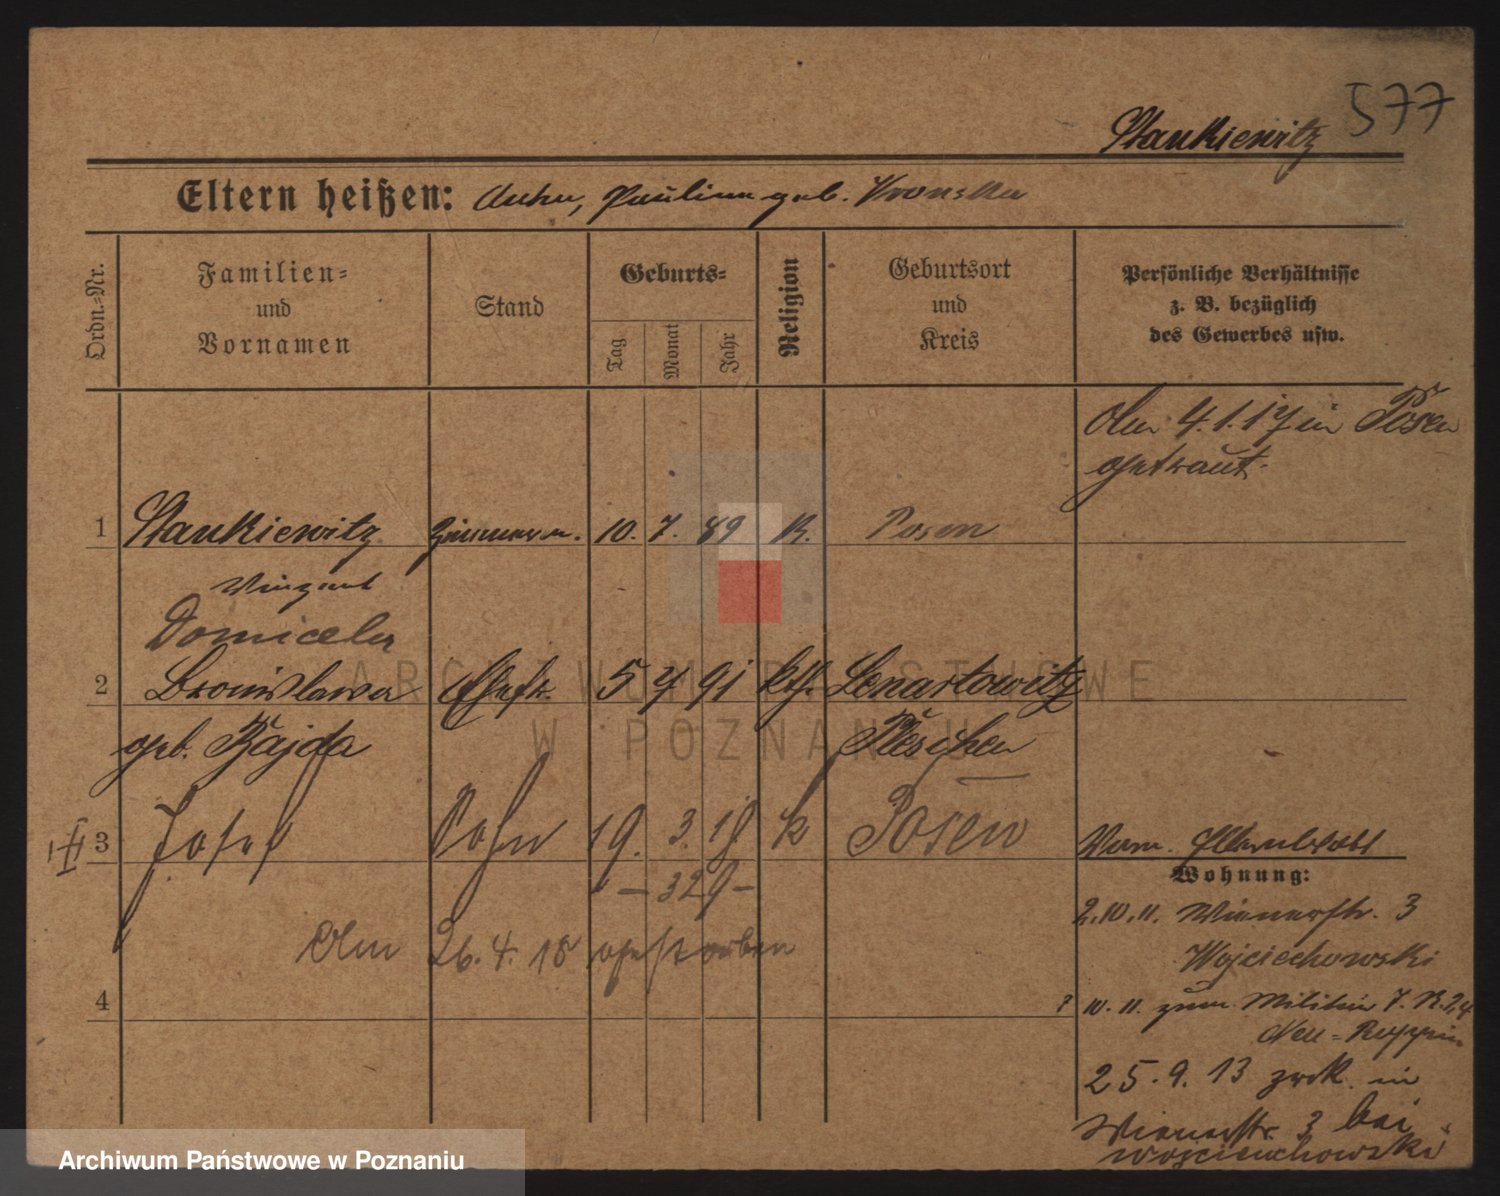 577
Stankiewitz
Eltern heißen: Pauline geb. Wronska
Ordn.-Nr.
Familien-
und
Vornamen
Stand
Geburts-
Tag
Monat
Jahr
Religion
Geburtsort
und
Kreis
Persönliche Verhältnisse
z. B. bezüglich
des Gewerbes usw.
Am 4.1.17 in Posen
getraut.
1 Stankiewitz Zimmerm. 10. 7. 89 K. Posen
Vinzent
Domicela
2 Bronislawa Ehefr. 5 4 91 kth. Lenartowitz
geb. Bajda Pleschen
3 Josef Sohn 19. 3. 18 k Posen
Wohnung:
Am 26. 4. 18 gestorben
2.10.11. Wienerstr. 3
Wojciechowski
4
10. 11. zum Militär 7. R. 24
Neu-Ruppin
25. 9. 13 zrck. in
Wienerstr. 3 bei
Wojciechowski
ARCHIWUM PAŃSTWOWE
W POZNANIU
Archiwum Państwowe w Poznaniu